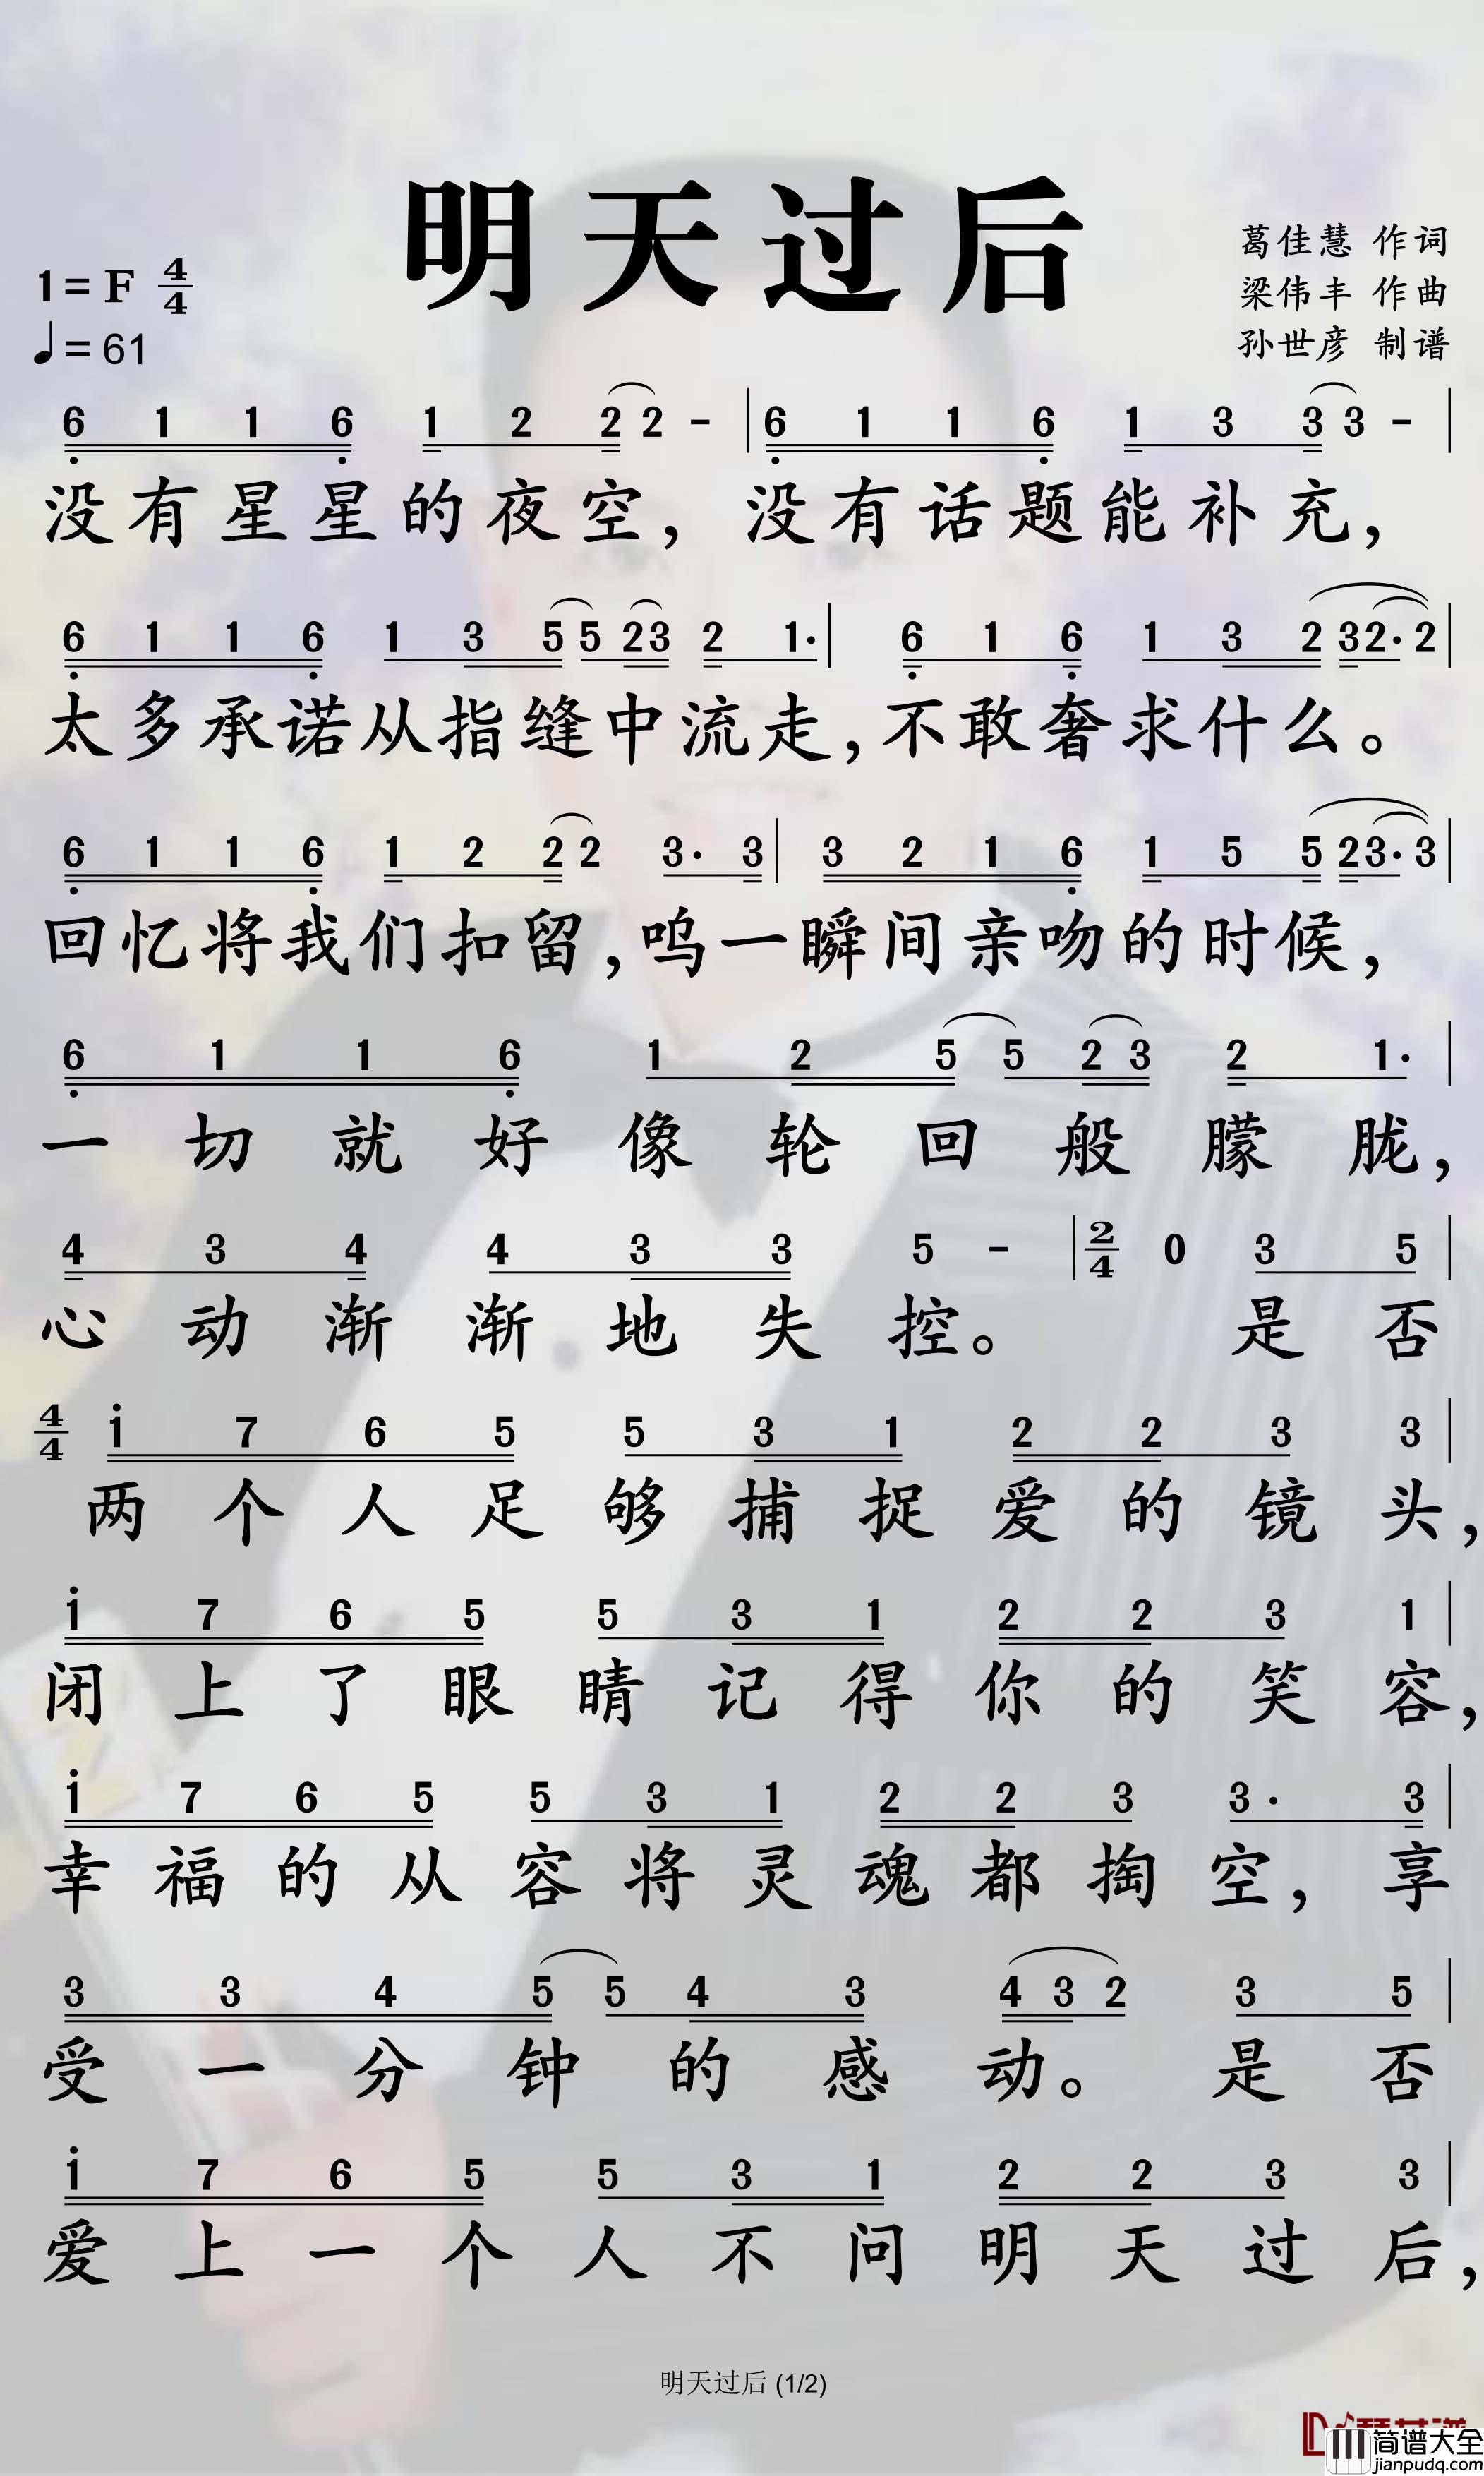 明天过后
葛佳慧 作词
1=F 4/4
梁伟丰 作曲
♩=61
孙世彦 制谱
6 1 1 6 1 2 2 2 - | 6 1 1 6 1 3 3 3 - |
没有星星的夜空，没有话题能补充，
6 1 1 6 1 3 5 5 2 3 2 1· | 6 1 6 1 3 2 3 2· 2 |
太多承诺从指缝中流走，不敢奢求什么。
6 1 1 6 1 2 2 2 3· 3 | 3 2 1 6 1 5 5 2 3· 3 |
回忆将我们扣留，呜一瞬间亲吻的时候，
6 1 1 6 1 2 5 5 2 3 2 1· |
一切就好像轮回般朦胧，
4 3 4 4 3 3 5 - | 2/4 0 3 5 |
心动渐渐地失控。 是否
4/4 i 7 6 5 5 3 1 2 2 3 3 |
两个人足够捕捉爱的镜头，
i 7 6 5 5 3 1 2 2 3 1 |
闭上了眼睛记得你的笑容，
i 7 6 5 5 3 1 2 2 3 3· 3 |
幸福的从容将灵魂都掏空，享
3 3 4 5 5 4 3 4 3 2 3 5 |
受一分钟的感动。是否
i 7 6 5 5 3 1 2 2 3 3 |
爱上一个人不问明天过后，
明天过后 (1/2)
简谱大全
jianpudq.com